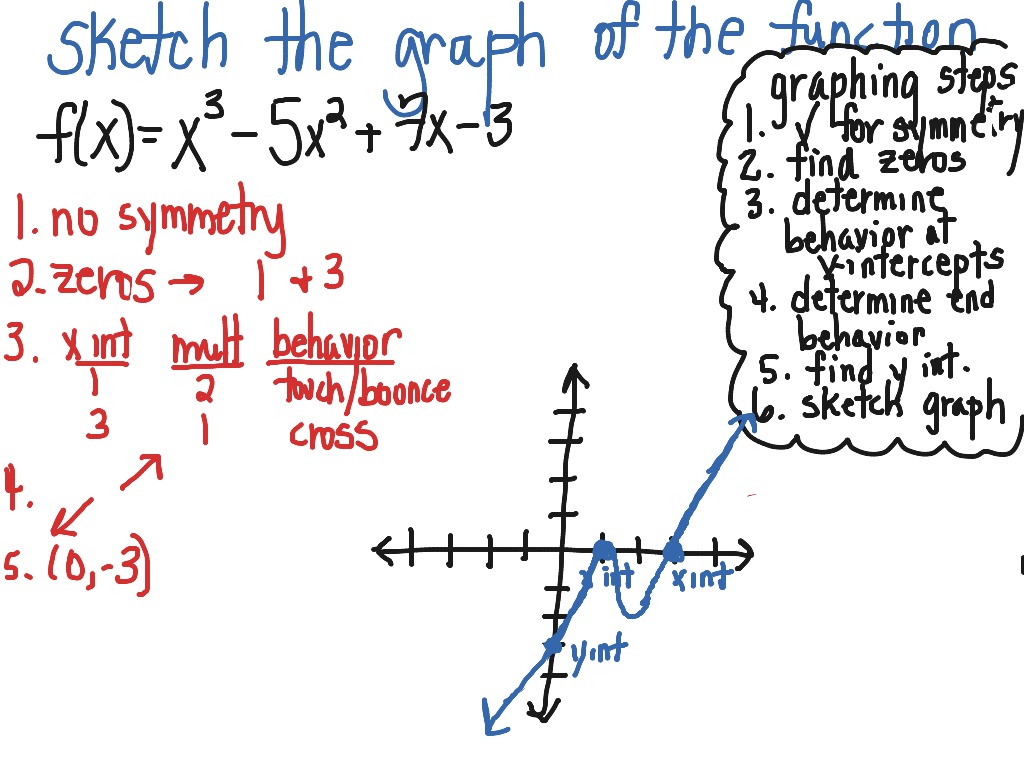 sketch the graph of the function
f(x) = x³ - 5x² + 7x - 3
graphing steps
1. y/ for symmetry
2. find zeros
3. determine
behavior at
x-intercepts
4. determine end
behavior
5. find y int.
6. sketch graph
1. no symmetry
2. zeros → 1 + 3
3. x int mult behavior
1 2 touch/bounce
3 1 cross
4.
5. (0, -3)
x int
x int
y int